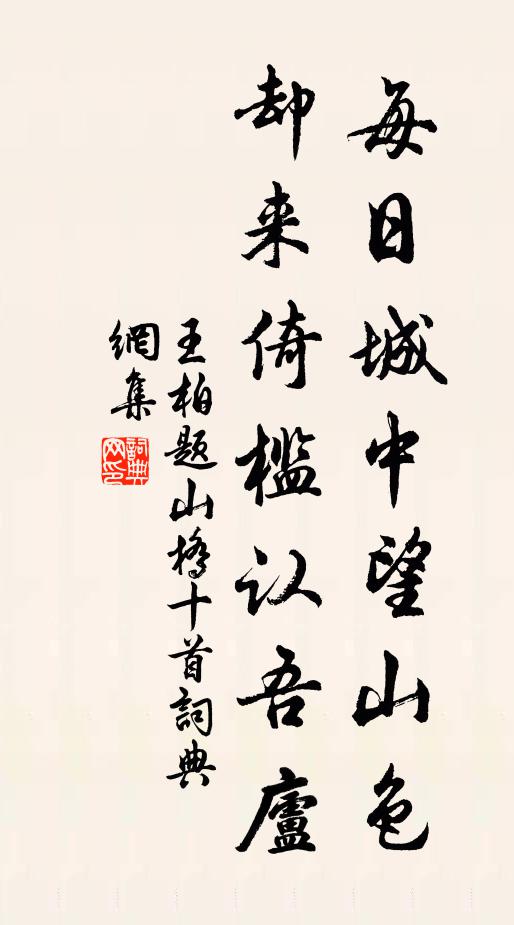 每日城中望山色
却来倚槛认吾廬
王柏题山橋十首詞典
網集
詞典
网印